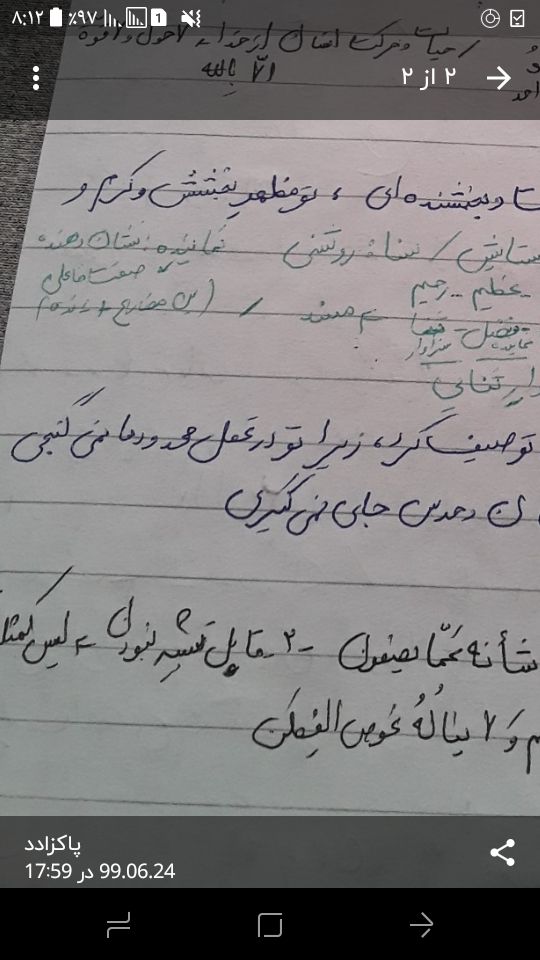 ۸:۱۲ ٪۹۷ 1
۲ از ۲
/ حیات و حرکت افعال از خدا ـ لا حول و لا قوة
الّا بِالله
و بخشنده‌ای ، تو مظهر بخشش و کرم و
ستایش / سنا: روشنی نماینده: نشان دهنده
عظیم - رحیم صفت فاعلی
فضل (بن مضارع + نده)
نماینده سزاوار
توصیف کرد، زیرا تو در عقل محدود ما نمی گنجی
و حدس جای نمی گیری
شأنه عَمّا یصفون ـ ۲ ـ قابل تشبیه نبودن ـ لیس کمثله
و لا ینالُهُ غوص الفِطَن
پاکزادد
99.06.24 در 17:59